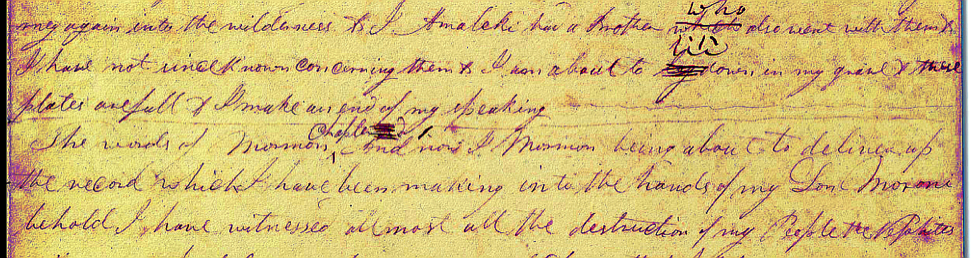 who
mey again into the wilderness & I Amaleki had a brother which also went with them &
lie
I have not since known concerning them & I am about to lay down in my grave & these
plates are full & I make an end of my speaking
Chapter 2
The words of Mormon, And now I Mormon being about to deliver up
the record which I have been making into the hands of my Son Moroni
behold I have witnessed allmost all the destruction of my People the Nephites